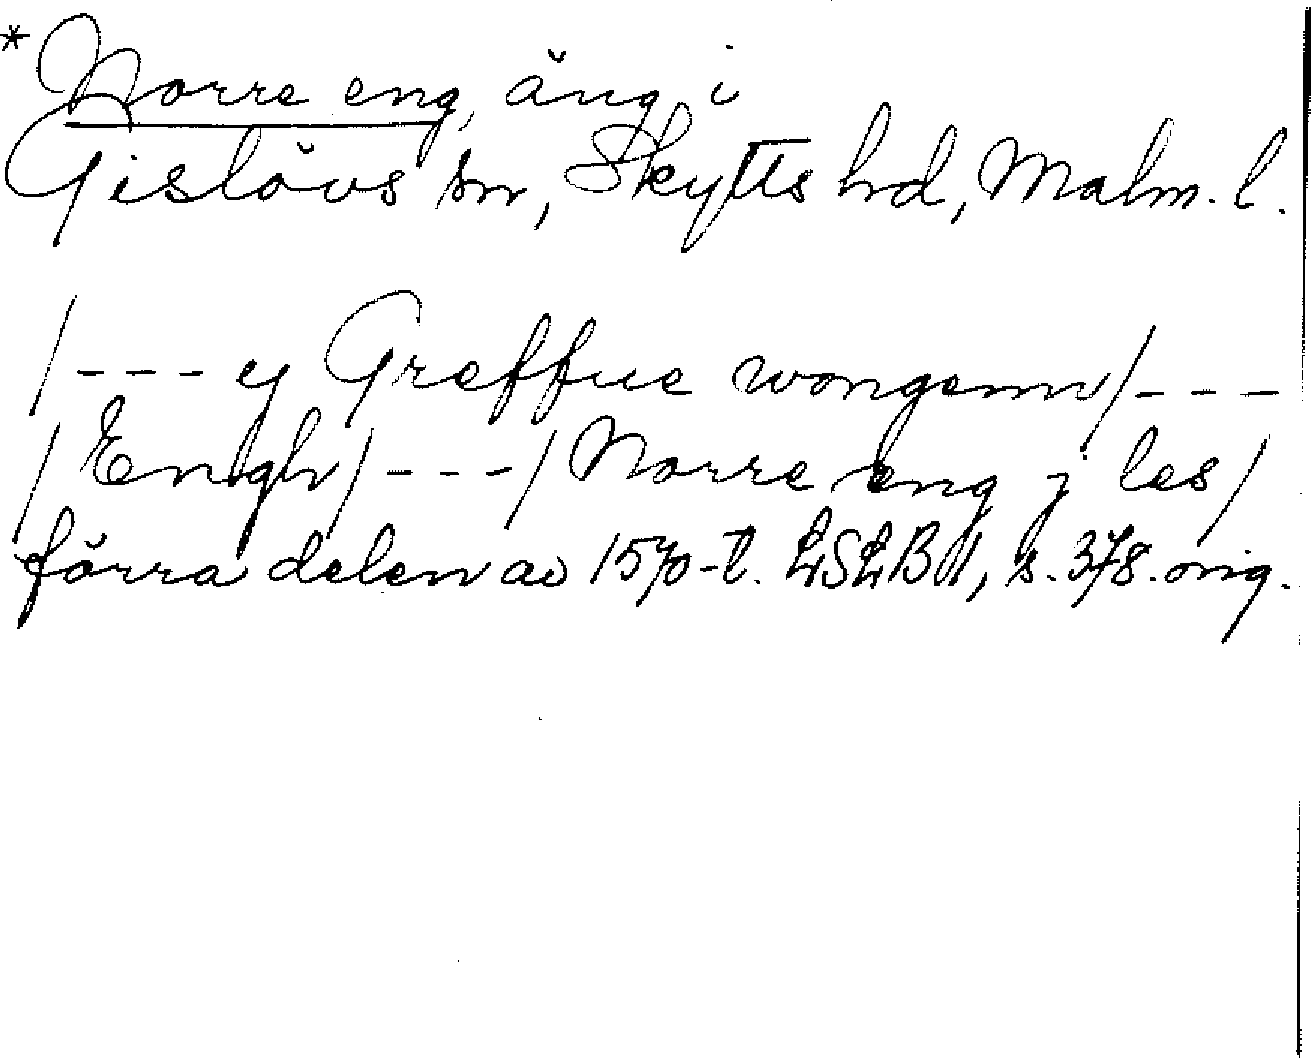 *Norre eng, äng i
Gislövs sn, Skytts hd, Malm. l.
/--- ej Greffue wongenn/---
/Engh/---/Norre eng j les/
förra delen av 1570-t. LSLB II, s. 378. orig.